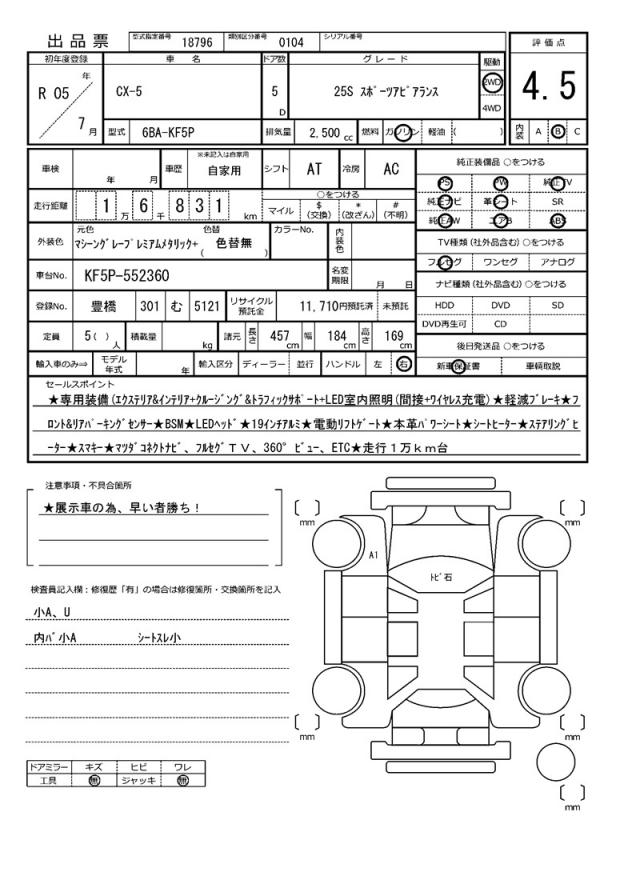 出品票 型式指定番号 18796 類別区分番号 0104 シリアル番号
初年度登録 車名 ドア数 グレード 駆動 評価点
R 05 年 7 月 CX-5 5 D 25S スポーツアピアランス 2WD 4WD 4.5
型式 6BA-KF5P 排気量 2,500 cc 燃料 ガソリン 軽油 ( ) 内装 A B C
車検 年 月 車歴 ※未記入は自家用 自家用 シフト AT 冷房 AC 純正装備品 ○をつける
PS PW 純正TV
走行距離 1 万 6 千 8 3 1 km ○をつける
マイル $ (交換) * (改ざん) # (不明)
純正ナビ 革シート SR
純正AW エアB ABS
外装色 元色 マシーングレープレミアムメタリック+ 色替 ( 色替無 ) カラーNo. 内装色
TV種類 (社外品含む) ○をつける
フルセグ ワンセグ アナログ
車台No. KF5P-552360 名変期限 月 日
ナビ種類 (社外品含む) ○をつける
登録No. 豊橋 301 む 5121 リサイクル預託金 11,710円預託済 未預託
HDD DVD SD
DVD再生可 CD
定員 5( ) 人 積載量 kg 諸元 長さ 457 cm 幅 184 cm 高さ 169 cm
後日発送品 ○をつける
輸入車のみ⇒ モデル年式 年 輸入区分 ディーラー 並行 ハンドル 左 右
新車保証書 車輌取説
セールスポイント
★専用装備(エクステリア&インテリア+クルージング&トラフィックサポート+LED室内照明(間接+ワイヤレス充電)★軽減ブレーキ★フ
ロント&リアパーキングセンサー★BSM★LEDヘッド★19インチアルミ★電動リフトゲート★本革パワーシート★シートヒーター★ステアリングヒ
ーター★スマキー★マツダコネクトナビ、フルセグTV、360°ビュー、ETC★走行1万km台
注意事項・不具合箇所
★展示車の為、早い者勝ち!
検査員記入欄:修復歴「有」の場合は修復箇所・交換箇所を記入
小A、U
内バ小A シートスレ小
ドアミラー キズ ヒビ ワレ
工具 無 ジャッキ 無
mm
mm
A1
トビ石
mm
mm
mm